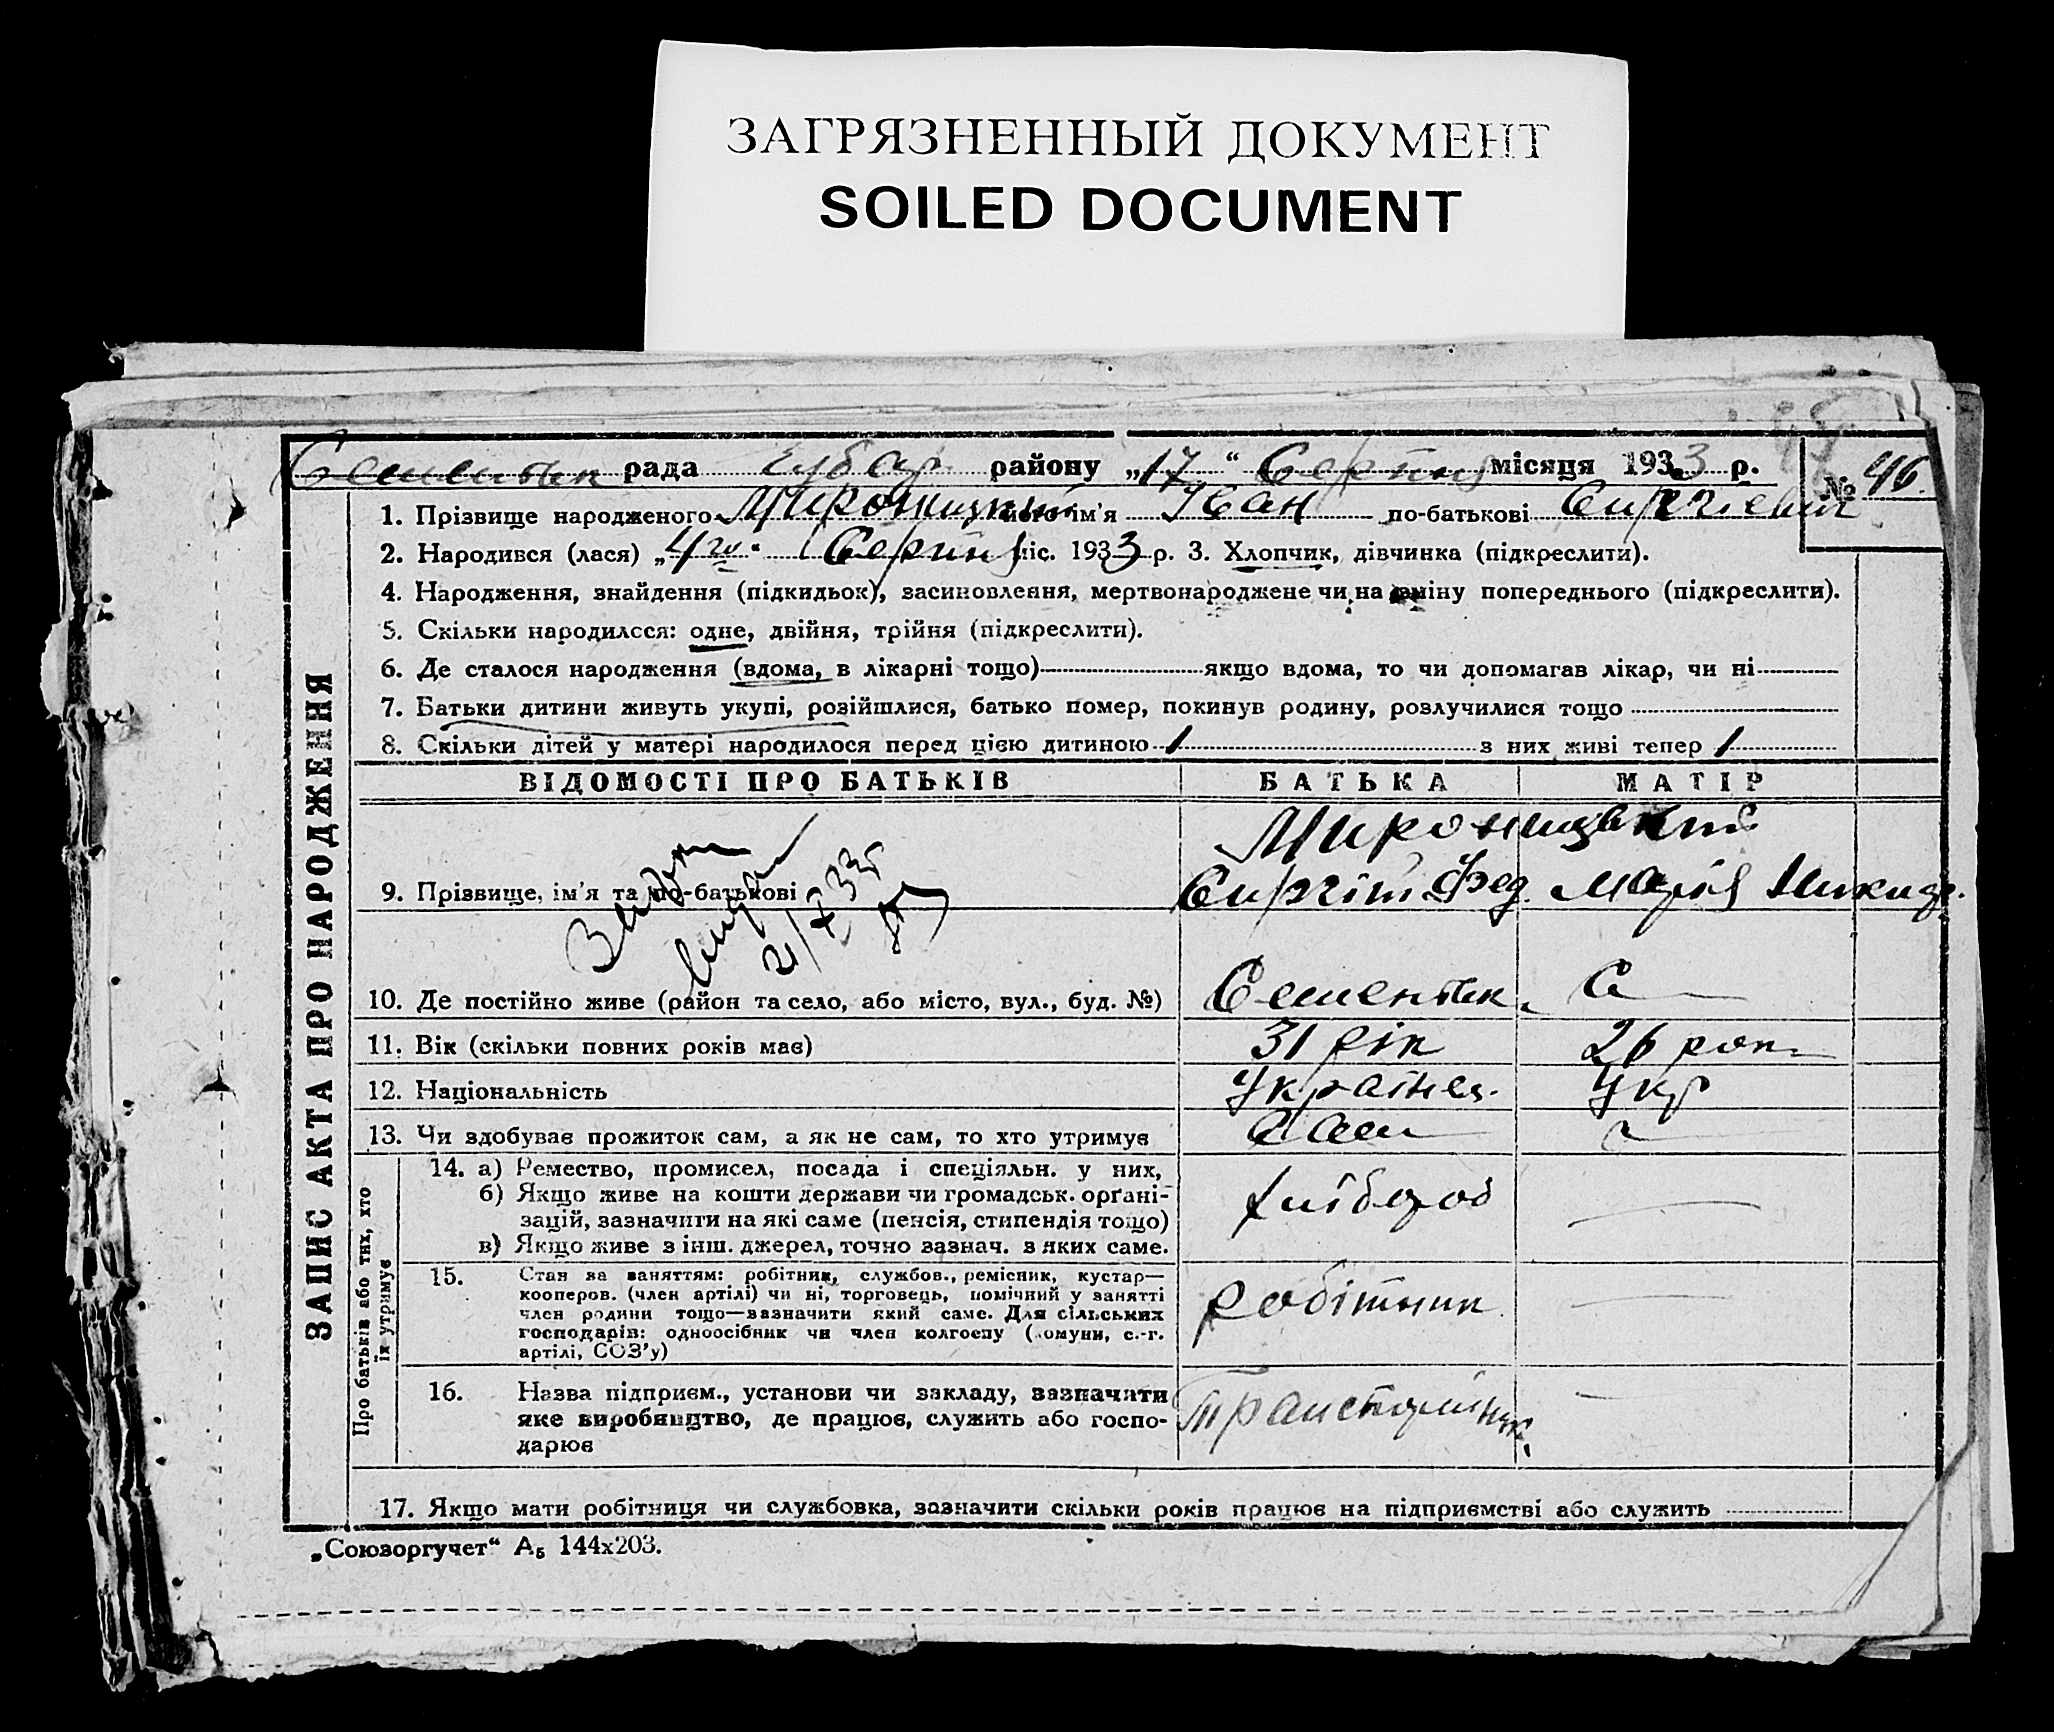 ЗАГРЯЗНЕННЫЙ ДОКУМЕНТ
SOILED DOCUMENT
рада Чубар району „17“ Серпня місяця 1933 р.
№ 46
1. Прізвище народженого Мироницький його ім'я Іван по-батькові Сиргієвич
2. Народився (лася) „4го“ Серпня міс. 1933 р. 3. Хлопчик, дівчинка (підкреслити).
4. Народження, знайдення (підкидьок), засиновлення, мертвонароджене чи на зміну попереднього (підкреслити).
5. Скільки народилося: одне, двійня, трійня (підкреслити).
6. Де сталося народження (вдома, в лікарні тощо) якщо вдома, то чи допомагав лікар, чи ні
7. Батьки дитини живуть укупі, розійшлися, батько помер, покинув родину, розлучилися тощо
8. Скільки дітей у матері народилося перед цією дитиною 1 з них живі тепер 1
ЗАПИС АКТА ПРО НАРОДЖЕННЯ
ВІДОМОСТІ ПРО БАТЬКІВ БАТЬКА МАТІР
Мироницький
9. Прізвище, ім'я та по-батькові Сиргій Фед. Марія Никиф.
10. Де постійно живе (район та село, або місто, вул., буд. №) С
11. Вік (скільки повних років має) 31 рік 26 рок
12. Національність Українец. Укр
13. Чи здобуває прожиток сам, а як не сам, то хто утримує сам
Про батьків або тих, хто
їх утримує
14. а) Ремество, промисел, посада і спеціяльн. у них,
б) Якщо живе на кошти держави чи громадськ. орґані-
зацій, зазначити на які саме (пенсія, стипендія тощо)
в) Якщо живе з інш. джерел, точно зазнач. з яких саме.
15. Стан за заняттям: робітник, службов., ремісник, кустар—
кооперов. (член артілі) чи ні, торговець, помічний у занятті
член родини тощо—зазначити який саме. Для сільських
господарів: одноосібник чи член колгоспу (комуни, с.-г.
артілі, СОЗ'у)
робітник
16. Назва підприєм., установи чи закладу, зазначити
яке виробництво, де працює, служить або госпо-
дарює
17. Якщо мати робітниця чи службовка, зазначити скільки років працює на підприємстві або служить
„Союзоргучет“ А₅ 144х203.